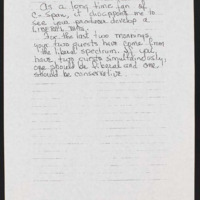 As a long time fan of
C-Span, it disappoints me to
see your producers develop a
LIBERAL BIAS.
For the last two mornings,
your two guests have come from
the liberal spectrum. If you
have two guests simultaneously,
one should be liberal and one
should be conservative.